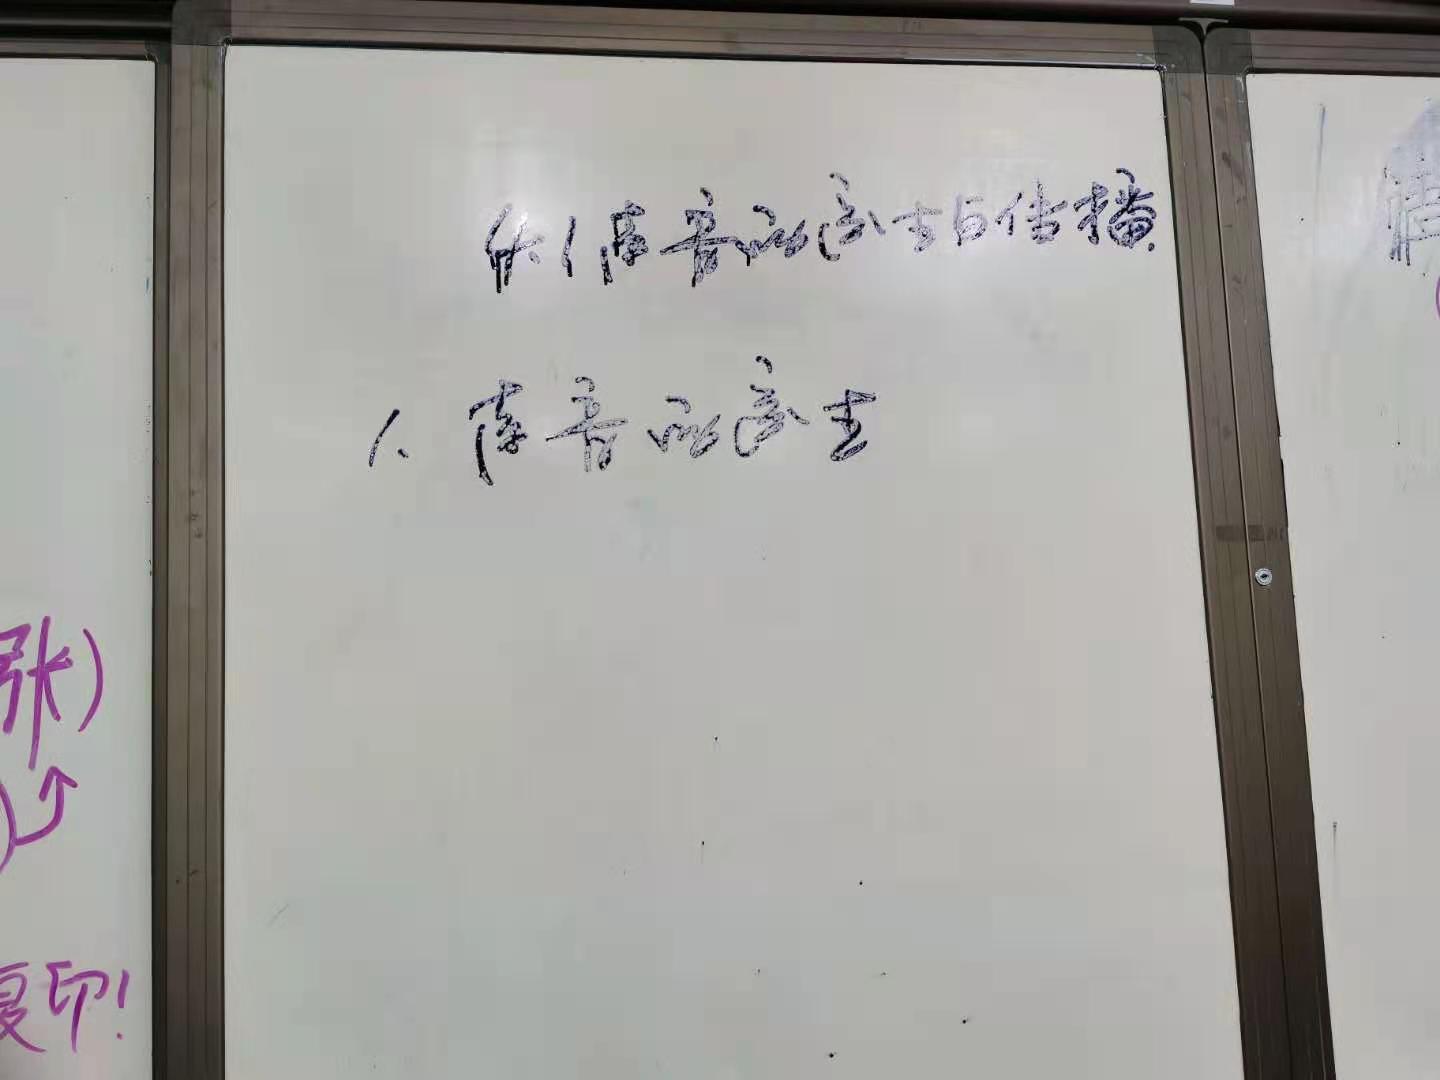 §1 声音的产生与传播
1、声音的产生
张)
复印!